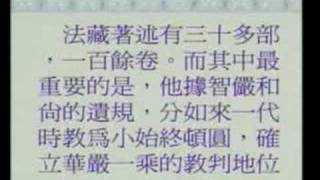 法藏著述有三十多部
，一百餘卷。而其中最
重要的是，他據智儼和
尚的遺規，分如來一代
時教為小始終頓圓，確
立華嚴一乘的教判地位